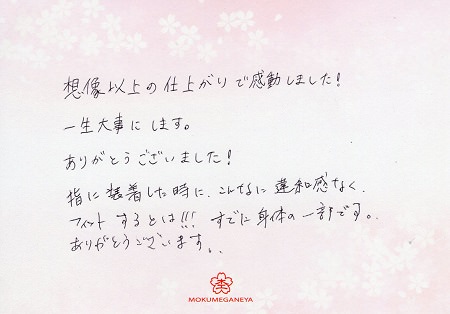 想像以上の仕上がりで感動しました!
一生大事にします。
ありがとうございました!
指に装着した時に、こんなに違和感なく、
フィットするとは!!! すでに身体の一部です。
ありがとうございます。
MOKUMEGANEYA